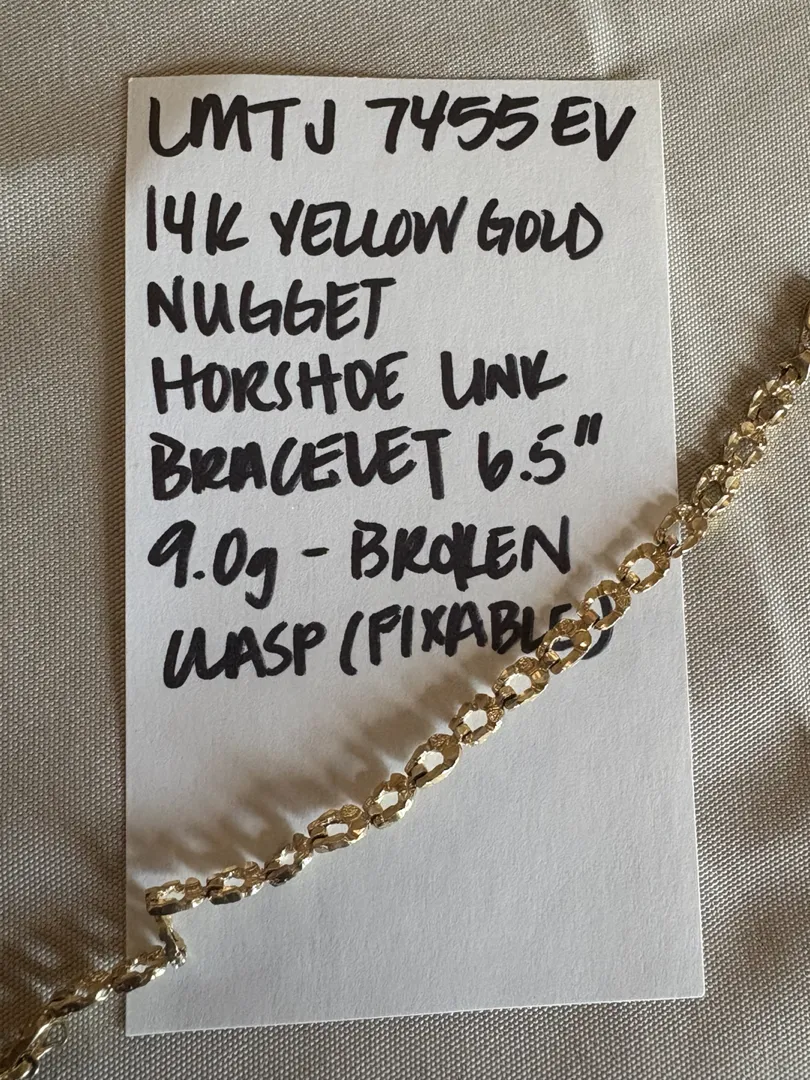 LMTJ 7455 EV
14K YELLOW GOLD
NUGGET
HORSHOE LINK
BRACELET 6.5"
9.0g - BROKEN
CLASP (FIXABLE)